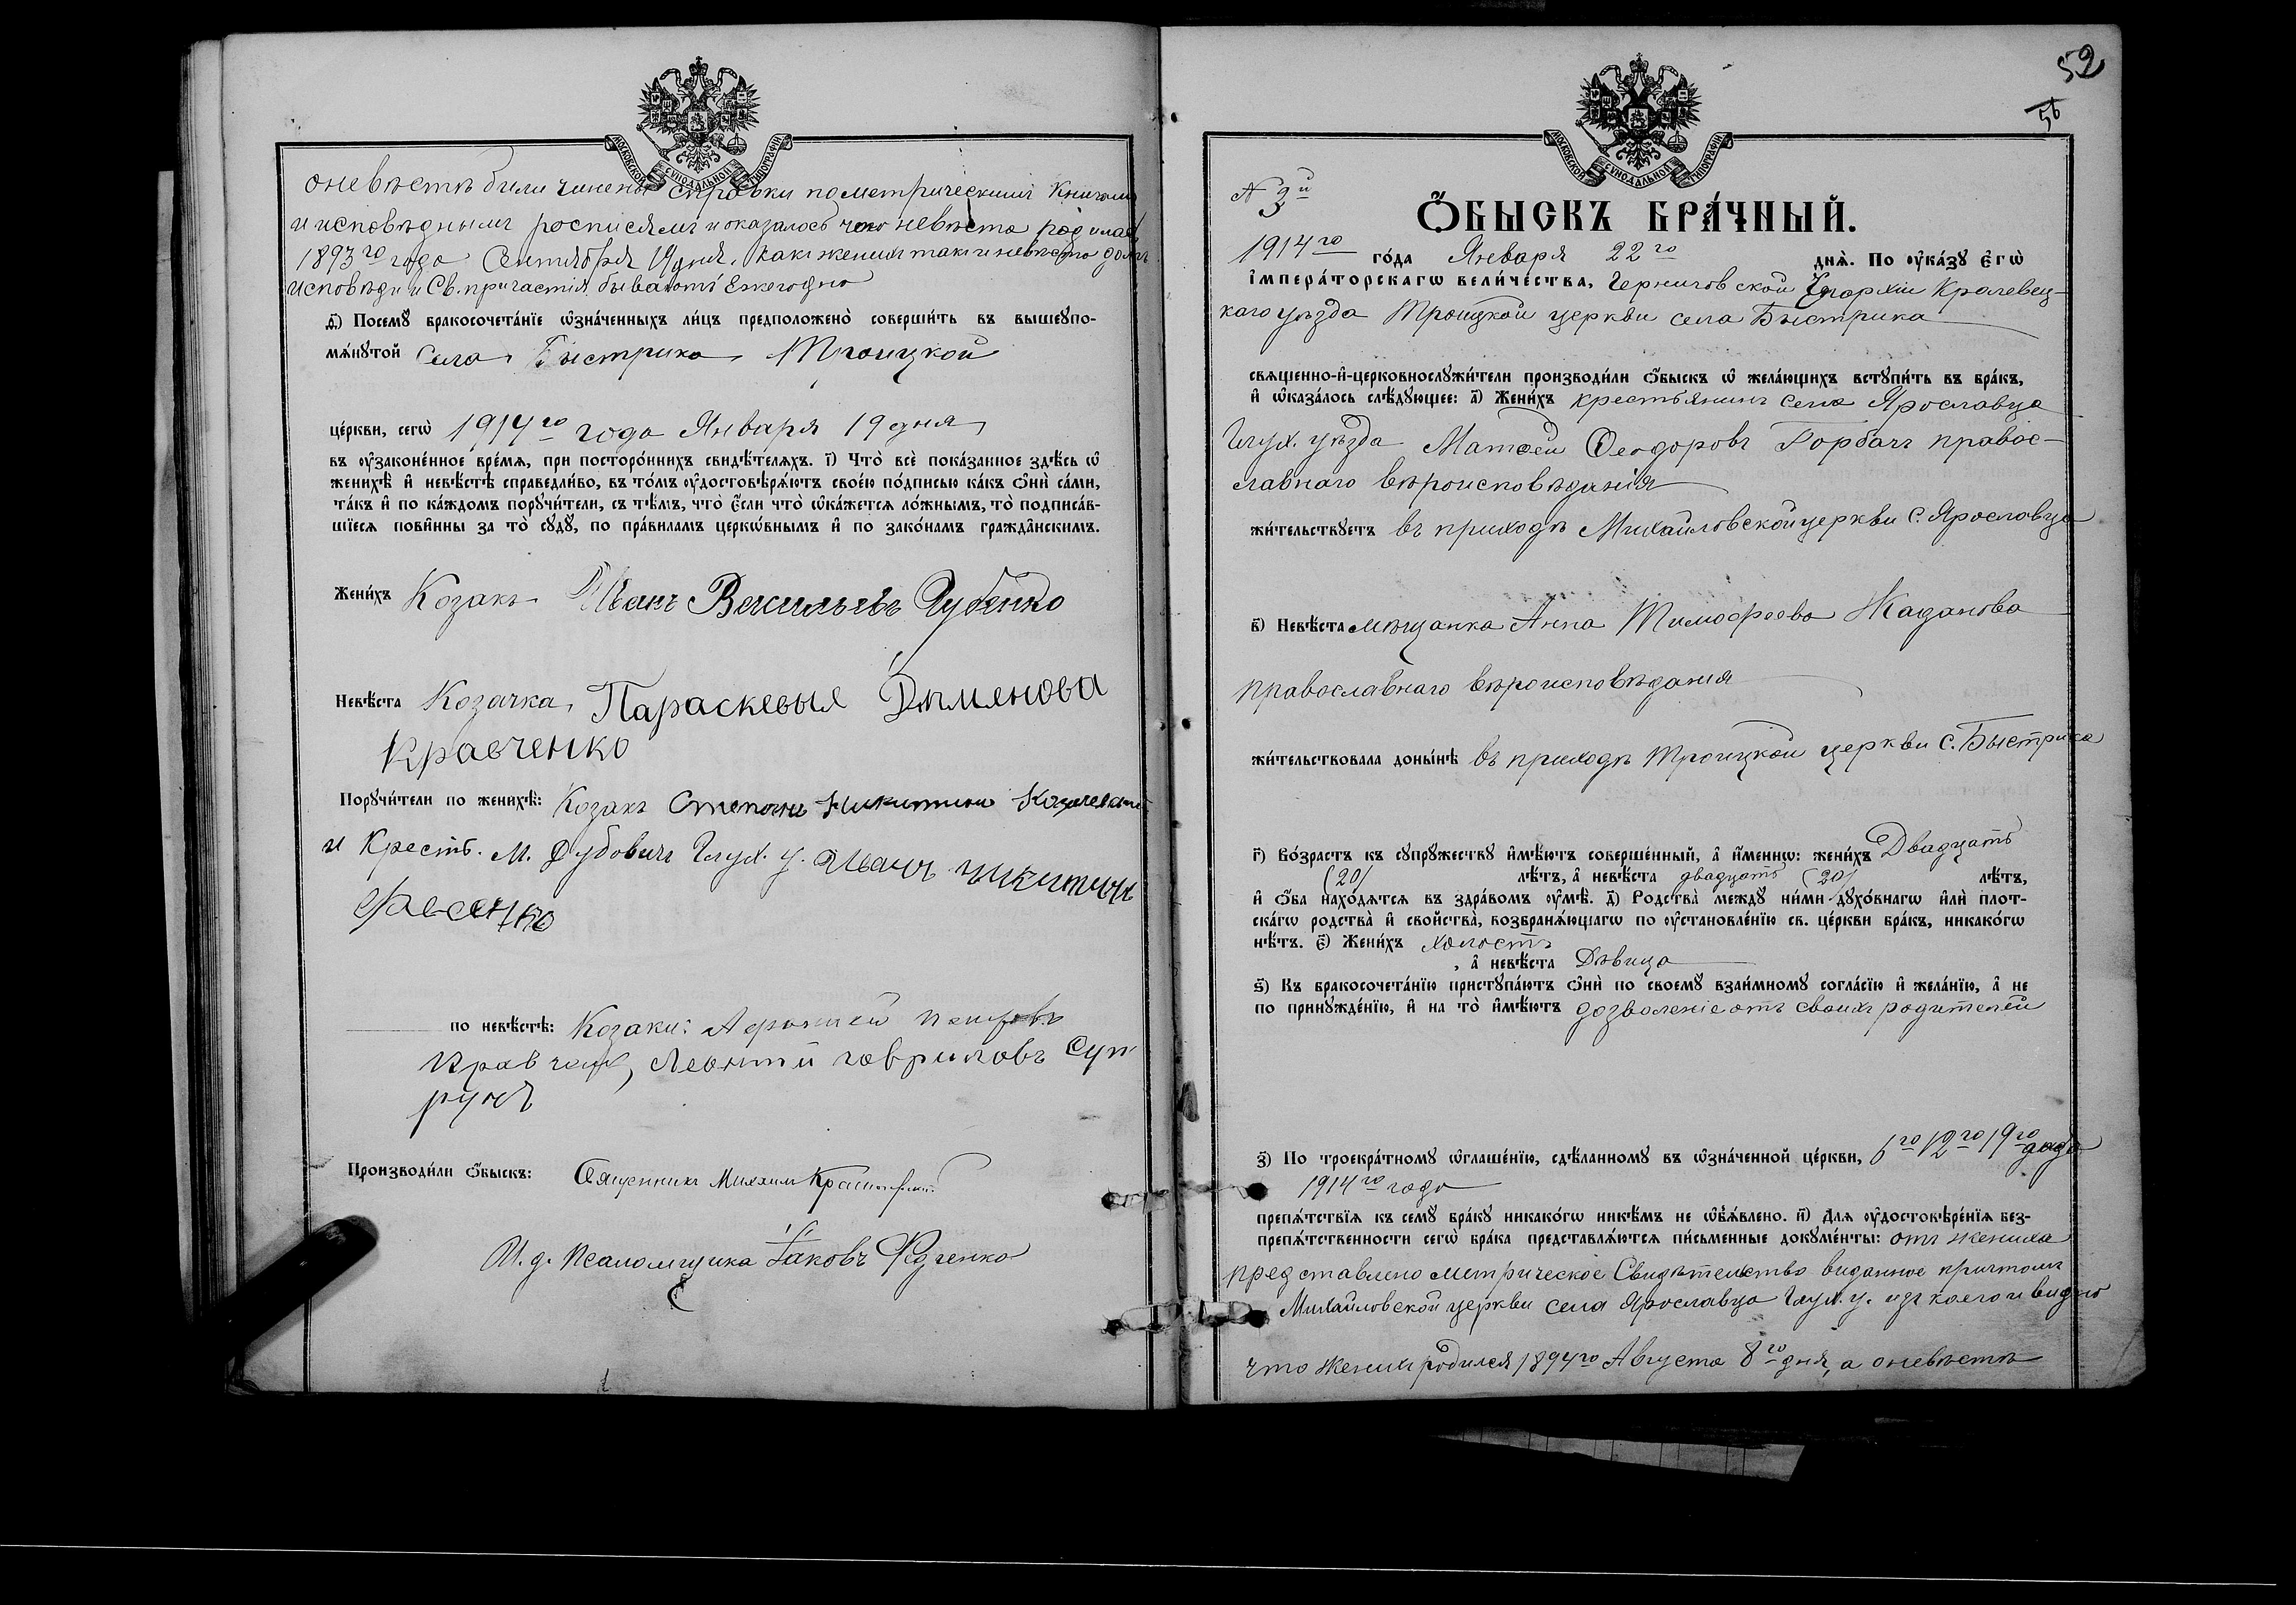 МОСКОВСКОЙ СѴНОДАЛЬНОЙ ТИПОГРАФІИ
оневѣстѣ были чинены справки по метрическимъ книгамъ
и исповѣднымъ росписямъ и оказалось что невѣста родилась
1893го года Сентября 19 дня, какъ женихъ такъ и невѣста
исповѣди и Св. причастія бываютъ Ежегодно
д҃) Посемꙋ бракосочета́нїе ѡ҆зна́ченныхъ ли́цъ предположено̀ соверши́ть въ вышеꙋпо-
мѧ́нꙋтой села Быстрика Троицкой
це́ркви, сегѡ̀ 1914го года Января 19 дня
въ ᲂу҆законе́нное вре́мѧ, при посторо́ннихъ свидѣ́телѧхъ. і҃) Что̀ всѐ пока́занное здѣ́сь ѡ҆
женихѣ̀ и҆ невѣ́стѣ справедли́во, въ то́мъ ᲂу҆достовѣрѧ́ютъ свое́ю по́дписью ка́къ ѻ҆нѝ са́ми,
та́къ и҆ по ка́ждомъ порꙋчи́тели, съ тѣ́мъ, что̀ є҆́сли что̀ ѡ҆ка́жетсѧ ло́жнымъ, то̀ подписа́в-
шїесѧ пови́нны за то̀ сꙋдꙋ̀, по пра́виламъ церкѡ́внымъ и҆ по зако́намъ гражда̂нскимъ.
Жени́хъ Козакъ Иванъ Васильевъ Дубенко
Невѣ́ста Козачка, Параскевыя Дѣмянова
Кравченко
Порꙋчи́тели по женихѣ̀: Козакъ Степанъ Никитинъ
и Крестъ. М. Дубович Глух. у. Иванъ Никитинъ
по невѣ́стѣ: Козаки: Афанасій Петровъ
Кравченко, Леонтій Гавриловъ Суп
рунъ
Производи́ли ѻ҆́быскъ: Священникъ Михаилъ
И. д. псаломщика Іаковъ Федченко
52
56
МОСКОВСКОЙ СѴНОДАЛЬНОЙ ТИПОГРАФІИ
N 3й
Ѻ҆́БЫСКЪ БРА́ЧНЫЙ.
1914го го́да Января 22го днѧ̀. По ᲂу҆ка́зꙋ є҆гѡ̀
і҆мпера́торскагѡ вели́чества, Черниговской Епархіи Кролевец-
каго уѣзда Троицкой церкви села Быстрика
свѧщенно-и҆-церковнослꙋжи́тели производи́ли ѻ҆́быскъ ѡ҆ жела́ющихъ встꙋпи́ть въ бра́къ,
и҆ ѡ҆каза́лось слѣ́дꙋющее: а҃) Жени́хъ крестьянинъ села Ярославца
Глух. уѣзда Матѳей Ѳеодоровъ Горбачъ правос-
славнаго вѣроисповѣданія
жи́тельствꙋетъ въ приходѣ Михайловской церкви с. Ярославца
в҃) Невѣ́ста мѣщанка Анна Тимофеева Жаданова
православнаго вѣроисповѣданія
жи́тельствовала доны́нѣ въ приходѣ Троицкой церкви с. Быстрика
г҃) Во́зрастъ къ сꙋпрꙋ́жествꙋ и҆мѣ́ютъ соверше́нный, а҆ и҆́менно: жени́хъ Двадцать
(20) лѣ́тъ, а҆ невѣ́ста двадцать (20) лѣ́тъ,
и҆ ѻ҆́ба нахо́дѧтсѧ въ здра́вомъ ᲂу҆мѣ̀. д҃) Родства̀ междꙋ ни́ми дꙋхо́внагѡ и҆лѝ плот-
ска́гѡ родства̀ и҆ свойства̀, возбранѧ́ющагѡ по ᲂу҆становле́нїю св. це́ркви бра́къ, никако́гѡ
нѣ́тъ. є҃) Жени́хъ холостъ
, а҆ невѣ́ста Дѣвица
ѕ҃) Къ бракосочета́нїю пристꙋпа́ютъ ѻ҆нѝ по своемꙋ̀ взаи́мномꙋ согла́сїю и҆ жела́нїю, а҆ не
по принꙋжде́нїю, и҆ на то̀ и҆мѣ́ютъ дозволеніе отъ своихъ родителей
з҃) По троекра́тномꙋ ѡ҆глаше́нїю, сдѣ́ланномꙋ въ ѡ҆зна́ченной це́ркви, 6го 12го 19го
1914го года
препѧ́тствїѧ къ семꙋ̀ бра́кꙋ никако́гѡ никѣ́мъ не ѡ҆б̾ѧ́влено. и҃) Для ᲂу҆достовѣре́нїѧ без-
препѧ́тственности сегѡ̀ бра́ка представлѧ́ютсѧ пи́сьменные докꙋме́нты: отъ жениха
представлено метрическое Свидѣтельство виданное причтомъ
Михайловской церкви села Ярославца Глух. у. изъ коего и видно
что женихъ родился 1894го Августа 8го дня, а оневѣстѣ